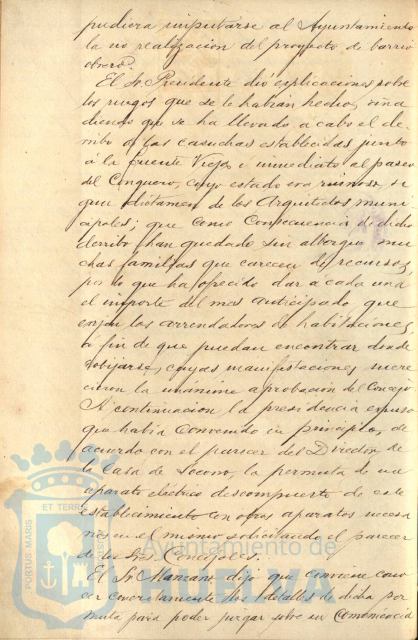 pudiera imputarse al Ayuntamiento
la no realización del proyecto de barrio
obrero.
El Sr. Presidente dió explicaciones sobre
los ruegos que se le habían hecho, aña
diendo que se ha llevado a cabo el de
rribo de las casuchas establecidas junto
á la fuente Vieja é inmediato al paseo
del Conquero, cuyo estado era ruinoso, se
gun dictamen de los Arquitectos muni
cipales; que como consecuencia de dicho
derribo han quedado sin albergue mu
chas familias que carecen de recursos,
por lo que ha ofrecido dar a cada una
el importe del mes anticipado que
exijen los arrendadores de habitaciones,
á fin de que puedan encontrar donde
cobijarse, cuyas manifestaciones mere
cieron la unánime aprobación del Concejo.
A continuacion la presidencia expuso
que habia convenido en principio, de
acuerdo con el parecer del Director de
la Casa de Socorro, la permuta de un
aparato eléctrico descompuesto de este
establecimiento con otros aparatos necesa
rios en el mismo solicitando el parecer
de los Sres. Concejales.
El Sr. Manzano dijo que conviene cono
cer concretamente los detalles de dicha per
muta para poder juzgar sobre su conveniencia
PORTUS MARIS ET TERRE
Ayuntamiento de
HUELVA